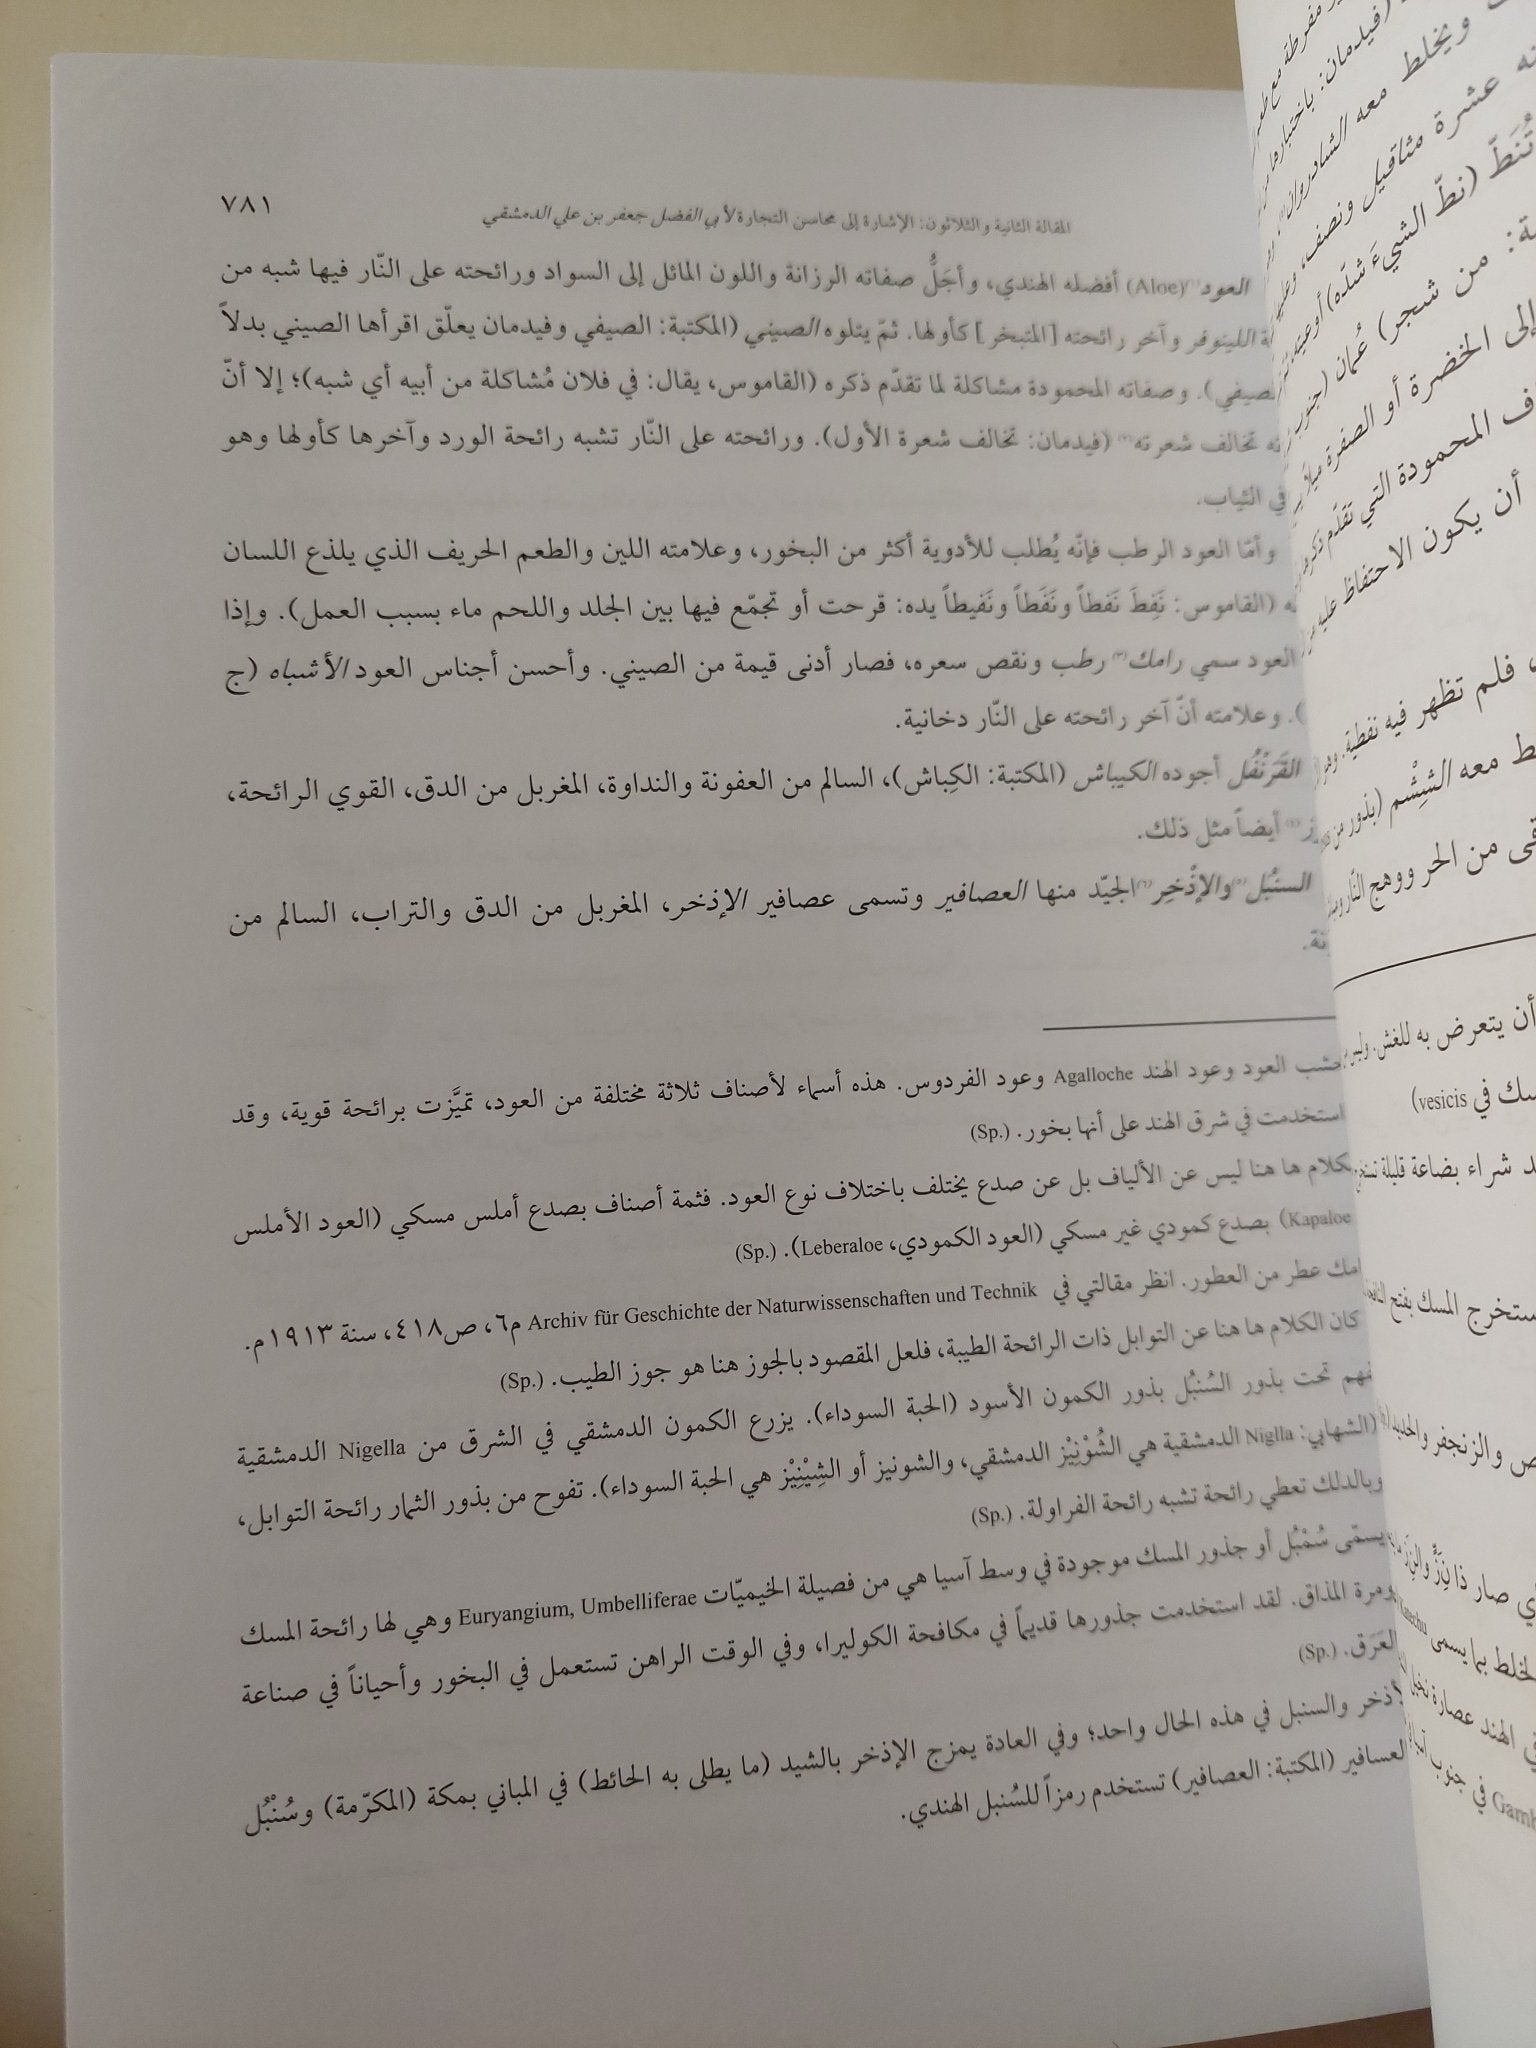 المقالة الثانية والثلاثون: الإشارة إلى محاسن التجارة لأبي الفضل جعفر بن علي الدمشقي
٧٨١
العود (Aloe) أفضله الهندي، وأجَلُّ صفاته الرزانة واللون المائل إلى السواد ورائحته على النّار فيها شبه من
اللينوفر وآخر رائحته [المتبخر] كأولها. ثمّ يتلوه الصيني (المكتبة: الصيفي وفيدمان يعلّق اقرأها الصيني بدلاً
الصيفي). وصفاته المحمودة مشاكلة لما تقدّم ذكره (القاموس، يقال: في فلان مُشاكلة من أبيه أي شبه)؛ إلا أنّ
تخالف شعرته (٢) (فيدمان: تخالف شعرة الأول). ورائحته على النّار تشبه رائحة الورد وآخرها كأولها وهو
في الثياب.
وأمّا العود الرطب فإنّه يُطلب للأدوية أكثر من البخور، وعلامته اللين والطعم الحريف الذي يلذع اللسان
(القاموس: نَفِطَ نَفطاً ونَفَطاً ونَفيطاً يده: قرحت أو تجمّع فيها بين الجلد واللحم ماء بسبب العمل). وإذا
العود سمي رامك (٣) رطب ونقص سعره، فصار أدنى قيمة من الصيني. وأحسن أجناس العود الأشباه (ج
). وعلامته أنّ آخر رائحته على النّار دخانية.
القَرَنْفُل أجوده الكيباش (المكتبة: الكِباش)، السالم من العفونة والنداوة، المغربل من الدق، القوي الرائحة،
أيضاً مثل ذلك.
السنْبُل (٥) والإذْخِر (٦) الجيّد منها العصافير وتسمى عصافير الإذخر، المغربل من الدق والتراب، السالم من
خشب العود وعود الهند Agalloche وعود الفردوس. هذه أسماء لأصناف ثلاثة مختلفة من العود، تميَّزت برائحة قوية، وقد
استخدمت في شرق الهند على أنها بخور. (Sp.)
الكلام ها هنا ليس عن الألياف بل عن صدع يختلف باختلاف نوع العود. فثمة أصناف بصدع أملس مسكي (العود الأملس
Kapaloe) بصدع كمودي غير مسكي (العود الكمودي، Leberaloe). (Sp.)
عطر من العطور. انظر مقالتي في Archiv für Geschichte der Naturwissenschaften und Technik م٦، ص٤١٨، سنة ١٩١٣م.
كان الكلام ها هنا عن التوابل ذات الرائحة الطيبة، فلعل المقصود بالجوز هنا هو جوز الطيب. (Sp.)
تحت بذور السُنبُل بذور الكمون الأسود (الحبة السوداء). يزرع الكمون الدمشقي في الشرق من Nigella الدمشقية
(الشهابي: Niglla الدمشقية هي الشُوْنِيْز الدمشقي، والشونيز أو الشِيْنِيْز هي الحبة السوداء). تفوح من بذور الثمار رائحة التوابل،
وبالدلك تعطي رائحة تشبه رائحة الفراولة. (Sp.)
يسمّى سُمْبُل أو جذور المسك موجودة في وسط آسيا هي من فصيلة الخيميّات Euryangium, Umbelliferae وهي لها رائحة المسك
ومرة المذاق. لقد استخدمت جذورها قديماً في مكافحة الكوليرا، وفي الوقت الراهن تستعمل في البخور وأحياناً في صناعة
العَرَق. (Sp.)
الأذخر والسنبل في هذه الحال واحد؛ وفي العادة يمزج الإذخر بالشيد (ما يطلى به الحائط) في المباني بمكة (المكرّمة) وسُنْبُل
العسافير (المكتبة: العصافير) تستخدم رمزاً للسُنبل الهندي.
(فيدمان:
ويخلط معه
عشرة مثاقيل ونصف،
تُنَطّ (نطّ الشيءَ شدّه) أوعيته
من شجر) عُمان (جنوب
إلى الخضرة أو الصفرة
المحمودة التي تقدّم
أن يكون الاحتفاظ عليه
، فلم تظهر فيه نفطية.
معه الشِشْم (بذور من
من الحر ووهج النّار
أن يتعرض به للغش.
في vesicis)
شراء بضاعة قليلة
يستخرج المسك بفتح
والزنجفر
صار ذا نَزٍّ
بما يسمى
في الهند عصارة
في جنوب